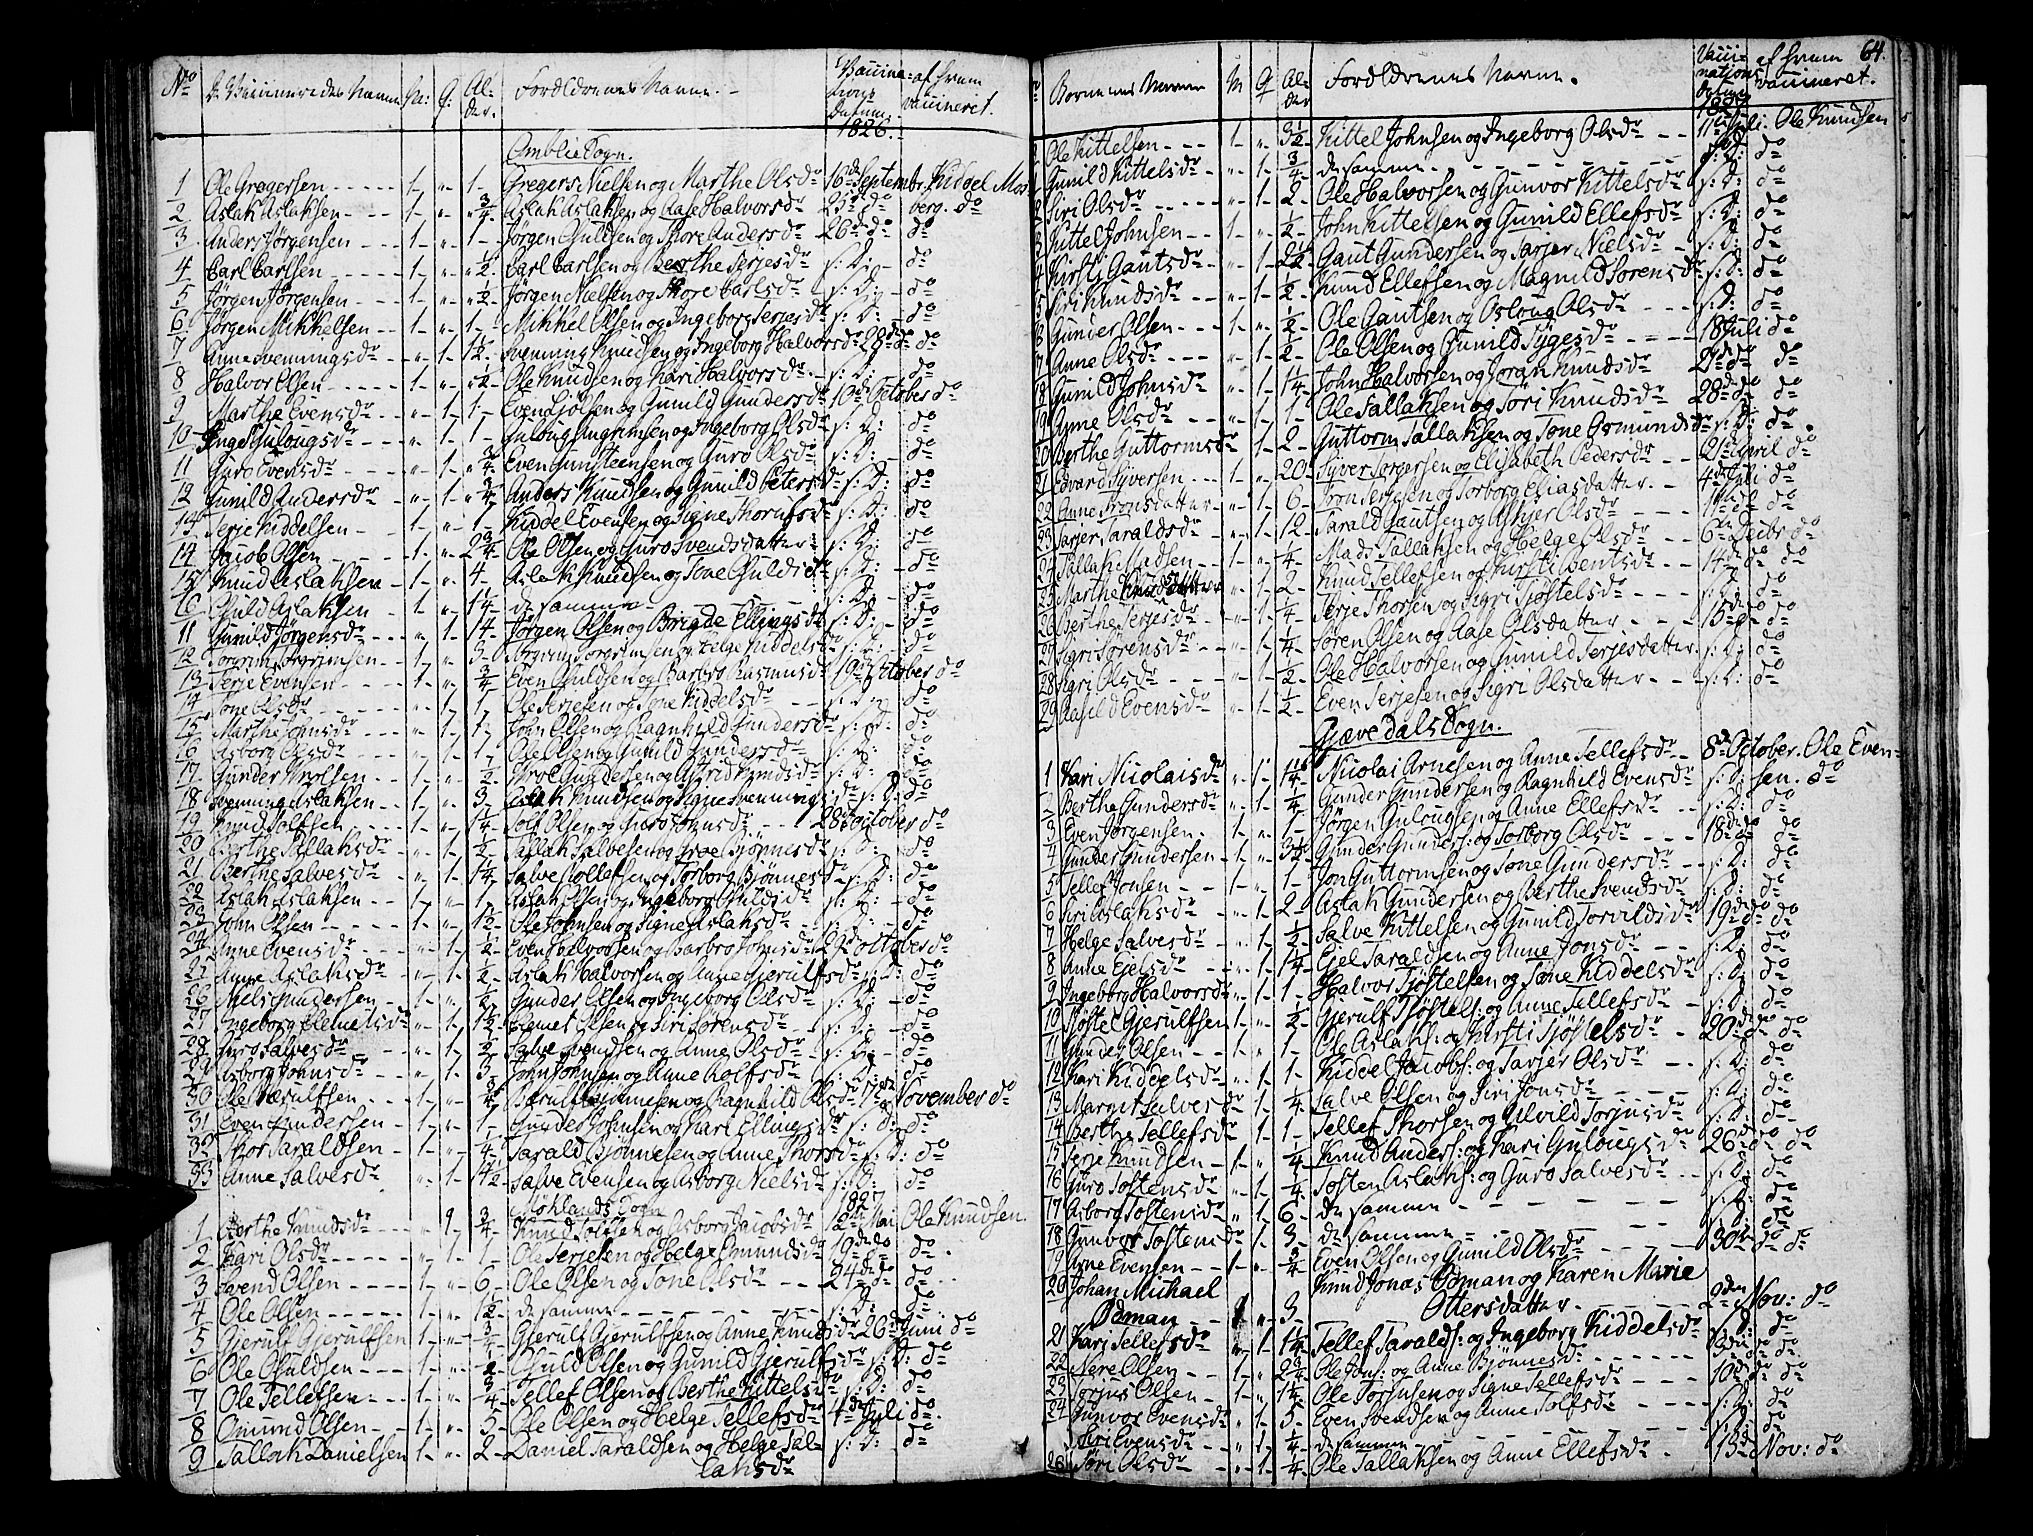 No De Vaccineredes Navne M: Q: Alder. Forældrenes Navne. Vaccinations Datum 1826. af hvem vaccineret.
Omblie Sogn.
1 Ole Gregersen 1 " 1 Gregers Nielsen og Marthe Olsdr 16de Septembr. Kiddel Mos
2 Aslak Aslaksen 1 " 3/4 Aslak Aslaksen og Aase Halvorsdr 25de do berg. do
3 Anders Jörgensen 1 " 1 Jörgen Guldsen og Thore Andersdr 26de do do
4 Carl Carlsen 1 " 1/2 Carl Carlsen og Berthe Terjesdr s: D: do
5 Jörgen Jörgensen 1 " 1/2 Jörgen Nielsen og Thore Carlsdr s: D: do
6 Jörgen Mikkelsen 1 " 1 Mikkel Olsen og Ingeborg Terjesdr s: D: do
7 Anne Svenningsdr " 1 1 1/2 Svenning Knudsen og Ingeborg Halvorsdr 28de do do
8 Halvor Olsen 1 " 1/2 Ole Knudsen og Kari Halvorsdr s: D: do
9 Marthe Evensdr " 1 1 Even Ljölsen og Gunild Gundersdr 10de October do
10 Inge Gulougsdr " 1 1 Guloug Angrimsen og Ingeborg Olsdr s: D: do
11 Guro Evensdr " 1 3/4 Even Gunsteensen og Guro Olsdr s: D: do
12 Gunild Andersdr " 1 3/4 Anders Knudsen og Gunild Petersdr s: D: do
13 Terje Kiddelsen 1 " 1 Kiddel Evensen og Signe Thorufsdr s: D: do
14 Jacob Olsen 1 " 2 3/4 Ole Olsen og Guro Svendsdatter s: D: do
15 Knud Aslaksen 1 " 4 Aslak Knudsen og Tone Guldsdr s: D: do
16 Guld Aslaksen 1 " 1 1/4 de samme s: D: do
11 Gunild Jörgensdr " 1 1/4 Jörgen Olsen og Brigde Ellingsdr s: D: do
12 Torgrim Torgrimsen 1 " 3 Torgrim Torgrimsen og Helge Kiddelsdr s: D: do
13 Terje Evensen 1 " 3/4 Even Guldsen og Barbro Rasmusdr 19de October do
14 Tone Olsdr " 1 1 Ole Terjesen og Tone Kiddelsdr s: D: do
15 Marthe Johnsdr " 1 1 John Olsen og Ragnhild Gundersdr s: D: do
16 Asborg Olsdr " 1 1 Ole Olsen og Gunild Gundersdr s: D: do
17 Gunder Arolsen 1 " 1/2 Arol Gundersen og Astrid Knudsdr s: D: do
18 Svenning Aslaksen 1 " 3 Aslak Knudsen og Signe Svenningsdr s: D: do
19 Knud Rolfsen 1 " 1/4 Rolf Olsen og Guro Johnsdr 28de October do
20 Berthe Tallaksdr " 1 1/2 Tallak Salvesen og Aroe Bjönnesdr s: D: do
21 Berthe Salvesdr " 1 1/4 Salve Rollefsen og Torborg Bjönnesdr s: D: do
22 Aslak Aslaksen 1 " 1 Aslak Olsen og Ingeborg Guldsdr s: D: do
23 John Olsen 1 " 1 1/2 Ole Johnsen og Signe Aslaksdr s: D: do
24 Anne Evensdr " 1 1/2 Even Halvorsen og Barbro Johnsdr 29de October do
25 Anne Aslaksdr " 1 1/2 Aslak Halvorsen og Anne Gjerulfsdr s: D: do
26 Niels Gundersen 1 " 1/2 Gunder Olsen og Ingeborg Olsdr s: D: do
27 Ingeborg Clemetsdr " 1 1 1/2 Clemet Olsen og Siri Sörensdr s: D: do
28 Guro Salvesdr " 1 1/2 Salve Svendsen og Anne Olsdr s: D: do
29 Asborg Johnsdr " 1 3 John Johnsen og Anne Rolfsdr s: D: do
30 Ole Bærulfsen 1 " 3/4 Bærulf Bjönnesen og Ragnhild Olsdr 1ste November do
31 Even Gundersen 1 " 1 Gunder Johnsen og Kari Ellingsdr s: D: do
32 Thor Taraldsen 1 " 1/4 Tarald Bjönnesen og Anne Thorsdr s: D: do
33 Anne Salvesdr " 1 1 1/2 Salve Evensen og Asborg Nielsdr s: D: do
Möhlands Sogn 1827
1 Berthe Knudsdr " 1 3/4 Knud Tolfsen og Asborg Jacobsdr 12te Mai Ole Knudsen
2 Kari Olsdr " 1 1 Ole Terjesen og Helge Omundsdr 19de do do
3 Svend Olsen 1 " 6 Ole Olsen og Tone Olsdr 24de do do
4 Ole Olsen 1 " 1/2 de samme s: D: do
5 Gjerulf Gjerulfsen 1 " 3/4 Gjerulf Gjerulfsen og Anne Knudsdr 26de Juni do
6 Ole Guldsen 1 " 2 Guld Olsen og Gunild Gjerulfsdr s: D: do
7 Ole Tellefsen 1 " 3/4 Tellef Olsen og Berthe Kittelsdr s: D: do
8 Omund Olsen 1 " 5 Ole Olsen og Helge Tellefsdr 4de Juli do
9 Tallak Danielsen 1 " 2 Daniel Taraldsen og Helge Tal- s: D: do
laksdr
64.
Börnenes Navne M Q Alder Forældrenes Navne. Vaccinations Datum 1827 af hvem vaccineret.
Ole Kittelsen 1 " 3 1/2 Kittel Johnsen og Ingeborg Olsdr 11te Juli: Ole Knudsen
Gunild Kittelsdr " 1 3/4 de samme s: D: do
Siri Olsdr " 1 2 Ole Halvorsen og Gunvor Kittelsdr s: D: do
Kittel Johnsen 1 " 1/2 John Kittelsen og Gunild Ellefsdr s: D: do
Kirsti Gautsdr " 1 2 1/2 Gaut Gundersen og Tarjer Nielsdr s: D: do
Siri Knudsdr " 1 1/2 Knud Ellefsen og Magnild Sörensdr s: D: do
Gunder Olsen 1 " 1/2 Ole Gautsen og Osloug Olsdr s: D: do
Anne Olsdr " 1 1/2 Ole Olsen og Gunild Sygesdr 18 Juli do
18 Gunild Johnsdr " 1 1/4 John Halvorsen og Joran Knudsdr 27de do do
19 Anne Olsdr " 1 1 Ole Tallaksen og Töri Knudsdr 28de do do
20 Berthe Guttormsdr " 1 2 Guttorm Tallaksen og Tone Osmundsdr s: D: do
21 Edvard Syversen 1 " 20 Syver Torgersen og Elisabeth Pedersdr 21de April do
22 Anne Tronsdatter " 1 6 Tron Terjesen og Torborg Eliasdatter 4de Juli do
23 Tarjer Taraldsdr " 1 12 Tarald Gautsen og Asbjer Olsdr 11te do do
24 Tallak Madsen 1 " 1/4 Mads Tallaksen og Helge Olsdr 6te Decbr do
25 Marthe Knudsdatter " 1 2 Knud Tellefsen og Kirsti Bentsdr 14de do do
26 Berthe Terjesdr " 1 1/4 Terje Thorsen og Sigri Tjöstelsdr s: D: do
27 Sigri Sörensdr " 1 1/4 Sören Olsen og Aase Olsdatter 15de do do
28 Sigri Olsdr " 1 1/2 Ole Halvorsen og Gunild Terjesdatter s: D: do
29 Aasild Evensdr " 1 1/2 Even Terjesen og Sigri Olsdatter s: D: do
Gjævedals Sogn.
1 Kari Nicolaisdr " 1 1 1/4 Nicolai Arnesen og Anne Tellefsdr 8de October. Ole Even-
2 Berthe Gundersdr " 1 1/4 Gunder Gundersen og Ragnhild Evensdr s: D: sen. do
3 Even Jörgensen 1 " 1 Jörgen Gulougsen og Anne Ellefsdr s: D: do
4 Gunder Gundersen 1 " 3 1/2 Gunder Gunders: og Torborg Olsdr 18de do do
5 Tellef Jonsen 1 " 1 Jon Guttormsen og Tone Gundersdr s: D: do
6 Siri Aslaksdr " 1 2 Aslak Gundersen og Berthe Svendsdr s: D: do
7 Helge Salvesdr " 1 1/2 Salve Kittelsen og Gunild Torvildsdr 19de do do
8 Anne Ejelsdr " 1 1/4 Ejel Taraldsen og Anne Jonsdr s: D: do
9 Ingeborg Halvorsdr " 1 1 Halvor Tjöstelsen og Tone Kiddelsdr s: D: do
10 Tjöstel Gjerulfsen 1 " 1/2 Gjerulf Tjöstels: og Anne Tellefsdr s: D: do
11 Gunder Olsen 1 " 1 Ole Aslaks: og Kirsti Tjöstelsdr 20de do do
12 Kari Kiddelsdr " 1 1 Kiddel Jacobs: og Tarjer Olsdr s: D: do
13 Margit Salvesdr " 1 1/4 Salve Olsen og Siri Jonsdr s: D: do
14 Berthe Tellefsdr " 1 1 Tellef Thorsen og Alvild Torjusdr s: D: do
15 Terje Knudsen 1 " 1/4 Knud Anders: og Kari Gulougsdr 26de do do
16 Guro Tostensdr " 1 1/4 Tosten Aslaks: og Guro Salvesdr s: D: do
17 Asborg Tostensdr " 1 6 de samme s: D: do
18 Gunvor Tostensdr " 1 3 de samme s: D: do
19 Arne Evensen 1 " 3/4 Even Olsen og Gunild Olsdr 30te do do
20 Johan Michael Knud Jonas Ödman og Karen Marie
Ödman 1 " 3 Ottersdatter 2den Nov: do
21 Kari Tellefsdr " 1 1/4 Tellef Taralds: og Ingeborg Kiddelsdr s: D: do
22 Nere Olsen 1 " 2 3/4 Ole Jons: og Anne Bjönnesdr 3die do do
23 Torjus Olsen 1 " 1 1/4 Ole Torjusen og Signe Tellefsdr 10de do do
24 Gunvor Evensdr " 1 3 Even Svendsen og Anne Tolfsdr s: D: do
Siri Evensdr " 1 1/4 de samme s: D: do
26 Töri Olsdr " 1 1/4 Ole Tallaksen og Anne Ellefsdr 13de Nov: do